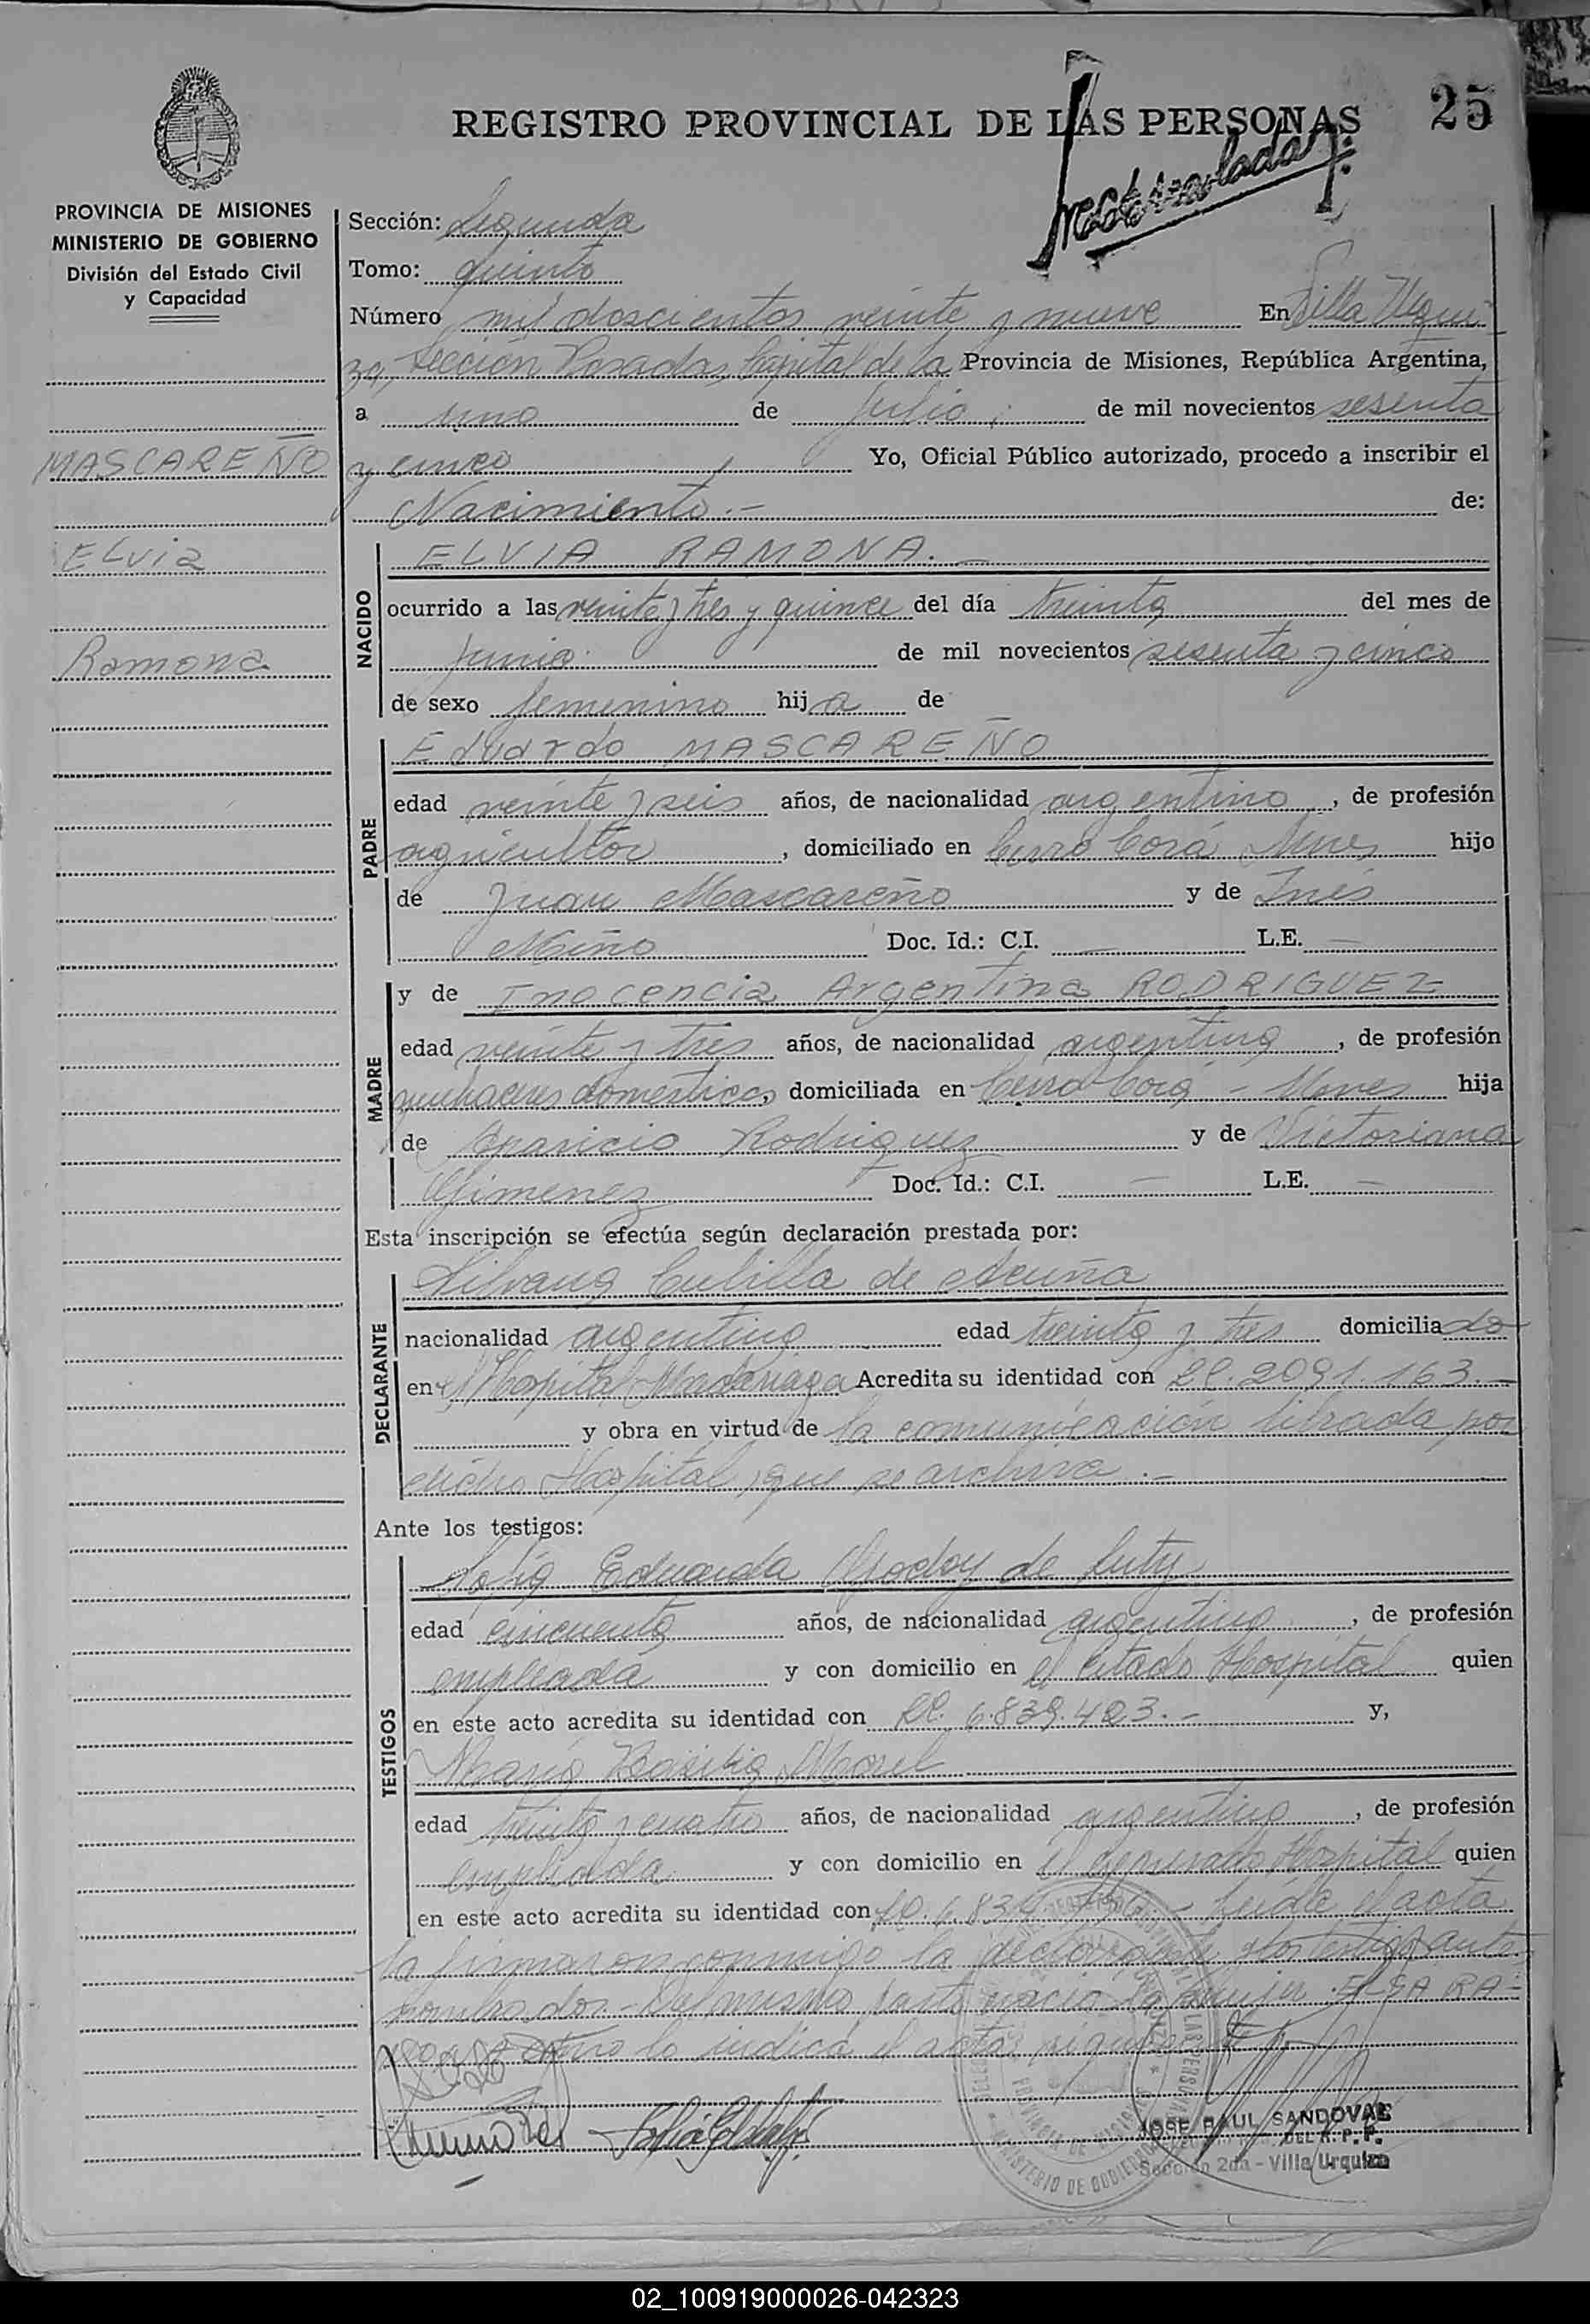 REGISTRO PROVINCIAL DE LAS PERSONAS
25
PROVINCIA DE MISIONES
MINISTERIO DE GOBIERNO
División del Estado Civil
y Capacidad
Sección: Segunda
Tomo: quinto
Número mil doscientos veinte y nueve En Villa Urqui
za, Sección Posadas, Capital de la Provincia de Misiones, República Argentina,
a uno de Julio, de mil novecientos sesenta
MASCAREÑO
y cinco, Yo, Oficial Público autorizado, procedo a inscribir el
Nacimiento.- de:
ELVia
Ramona
NACIDO
ELVIA RAMONA.-
ocurrido a las veinte y tres y quince del día treinta del mes de
Junio de mil novecientos sesenta y cinco
de sexo femenino hija de
PADRE
Eduardo MASCAREÑO
edad veinte y seis años, de nacionalidad argentino, de profesión
agricultor, domiciliado en Cerro Corá Mnes hijo
de Juan Mascareño y de Inés
Miño Doc. Id.: C.I. — L.E. —
MADRE
y de Inocencia Argentina RODRIGUEZ
edad veinte y tres años, de nacionalidad argentina, de profesión
quehaceres domesticos, domiciliada en Cerro Corá - Mnes hija
de Aparicio Rodriguez y de Victoriana
Gimenez Doc. Id.: C.I. — L.E. —
Esta inscripción se efectúa según declaración prestada por:
DECLARANTE
Silvana Cubilla de Acuña
nacionalidad argentina edad treinta y tres domiciliada
en el Hospital Madariaga Acredita su identidad con LC. 2091.163.-
y obra en virtud de la comunicación librada por
dicho Hospital, que se archiva.-
Ante los testigos:
TESTIGOS
Sofia Eduarda Godoy de Luty
edad cincuenta años, de nacionalidad argentina, de profesión
empleada y con domicilio en el citado Hospital quien
en este acto acredita su identidad con LC. 6.839.403.- y,
Maria Basilia Morel
edad treinta y cuatro años, de nacionalidad argentina, de profesión
empleada y con domicilio en el Hospital quien
en este acto acredita su identidad con LC. Leida el acta
la firmaron conmigo la declarante y los testigos ante
nombrados.- Del mismo parto nació la mujer ELSA RA-
como lo indica el acta siguiente
JOSE RAUL SANDOVAL
DEL R. P. P.
Sección 2da - Villa Urquiza
02_100919000026-042323